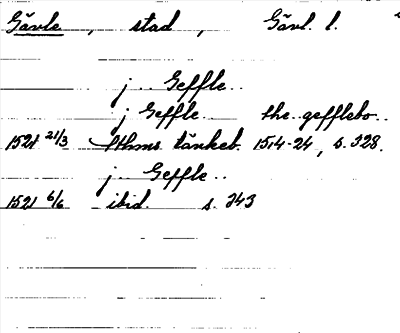 Gävle, stad, Gävl. l.
j .. Geffle ..
j Geffle the gefflebo ..
1521 21/3 Sthms tänkeb. 1514-24, s. 328.
j .. Geffle ..
1521 6/6 ibid. s. 343